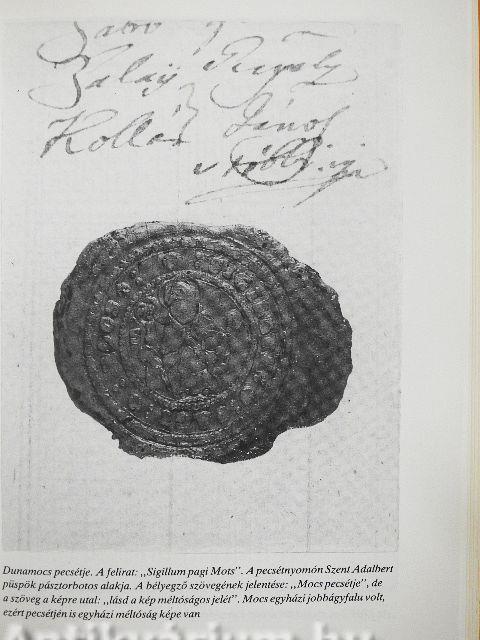 Zalay
Kollár János
Dunamocs pecsétje. A felirat: „Sigillum pagi Mots”. A pecsétnyomón Szent Adalbert
püspök pásztorbotos alakja. A bélyegző szövegének jelentése: „Mocs pecsétje”, de
a szöveg a képre utal: „lásd a kép méltóságos jelét”. Mocs egyházi jobbágyfalu volt,
ezért pecsétjén is egyházi méltóság képe van